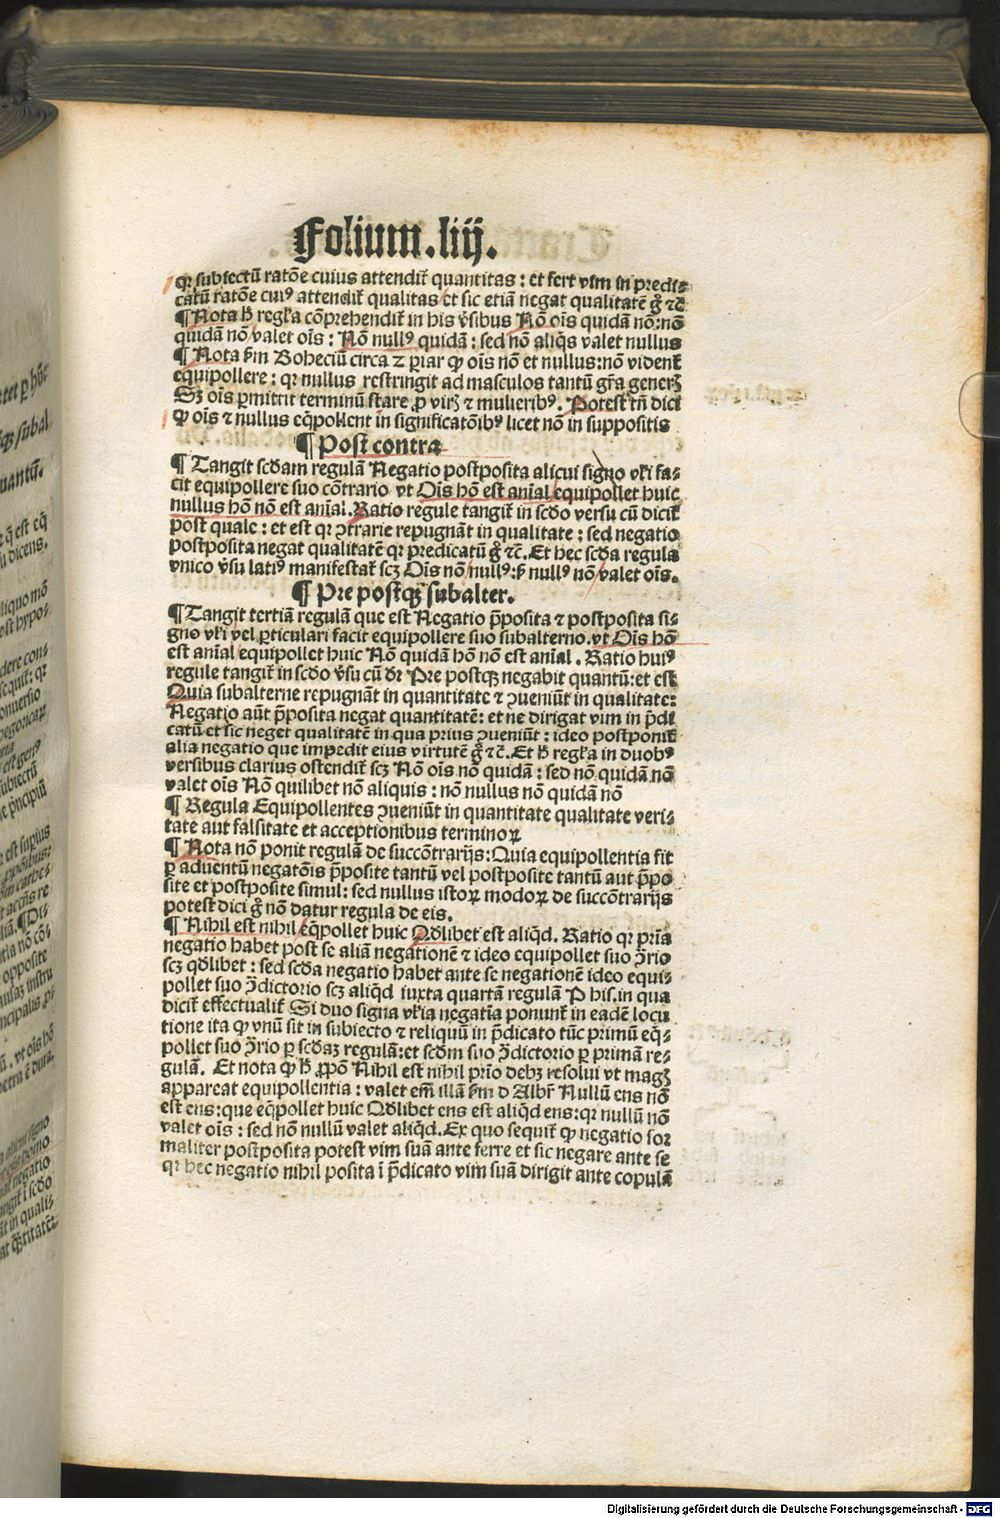 Folium.liij.
qꝛ subiectū ratōe cuius attendit̄ quantitas : et fert vim in predi⸗
catū ratōe cuiꝰ attendit̄ qualitas et sic etiā negat qualitatē gͦ ⁊c̄
¶ Nota ħ regl̄a cōprehendit̄ in his v̄sibus Nō oīs quidā nō : nō
quidā nō valet oīs : Nō nullꝰ quidā : sed nō aliq̄s valet nullus
¶ Nota ẜm Boheciū circa 2 ꝑiar ꝙ oīs nō et nullus : nō vident̄
equipollere : qꝛ nullus restringit ad masculos tantū gr̄a generꝫ
Sꝫ oīs ꝑmittit terminū stare ꝓ virꝫ ⁊ mulieribꝰ. Potest tn̄ dici
ꝙ oīs ⁊ nullus eq̄pollent in significatōibꝰ licet nō in suppositis
¶ Post contra
¶ Tangit scd̄am regulā Negatio postposita alicui signo vl̄i fa⸗
cit equipollere suo cōtrario vt Oīs hō est aīal equipollet huic
nullus hō nō est aīal. Ratio regule tangit̄ in scd̄o versu cū dicit̄
post quale : et est qꝛ ꝯtrarie repugnāt in qualitate : sed negatio
postposita negat qualitatē qꝛ predicatū gͦ ⁊c̄. Et hec scd̄a regula
vnico v̄su latiꝰ manifestat̄ scꝫ Oīs nō nullꝰ : ẜ nullꝰ nō valet oīs.
¶ Pre postqꝫ subalter.
¶ Tangit tertiā regulā que est Negatio p̄posita ⁊ postposita si⸗
gno vl̄i vel ꝑticulari facit equipollere suo subalterno. vt Oīs hō
est aīal equipollet huic Nō quidā hō nō est aīal . Ratio huiꝰ
regule tangit̄ in scd̄o v̄su cū dr̄ Pre postqꝫ negabit quantū : et est
Quia subalterne repugnāt in quantitate ⁊ ꝯueniūt in qualitate :
Negatio aūt p̄posita negat quantitatē : et ne dirigat vim in p̄di
catū et sic neget qualitatē in qua prius ꝯueniūt : ideo postponit̄
alia negatio que impedit eius virtutē gͦ ⁊c̄. Et ħ regl̄a in duobꝰ
versibus clarius ostendit̄ scꝫ Nō oīs nō quidā : sed nō quidā nō
valet oīs Nō quilibet nō aliquis : nō nullus nō quidā nō
¶ Regula Equipollentes ꝯueniūt in quantitate qualitate veri⸗
tate aut falsitate et acceptionibus terminoꝝ
¶ Nota nō ponit regulā de succōtrarijs : Quia equipollentia fit
ꝑ aduentū negatōis p̄posite tantū vel postposite tantū aut p̄po
site et postposite simul : sed nullus istoꝝ modoꝝ de succōtrarijs
potest dici gͦ nō datur regula de eis.
¶ Nihil est nihil eq̄pollet huic Qd̄libet est aliqd̄. Ratio qꝛ pr̄ia
negatio habet post se aliā negationē ⁊ ideo equipollet suo ꝯ̄rio
scꝫ qd̄libet : sed scd̄a negatio habet ante se negationē ideo equi⸗
pollet suo ꝯ̄dictorio scꝫ aliqd̄ iuxta quartā regulā P his. in qua
dicit̄ effectualit̄ Si duo signa vl̄ia negatīa ponunt̄ in eadē locu
tione ita ꝙ vnū sit in subiecto ⁊ reliquū in p̄dicato tūc primū eq̄⸗
pollet suo ꝯ̄rio ꝑ scd̄aꝫ regulā : et scd̄m suo ꝯ̄dictorio ꝑ primā re⸗
gulā. Et nota ꝙ ħ ꝓpō Nihil est nihil prīo debꝫ resolui vt magꝫ
appareat equipollentia : valet em̄ illā ẜm d Albr̄ Nullū ens nō
est ens : que eq̄pollet huic Qd̄libet ens est aliqd̄ ens : qꝛ nullū nō
valet oīs : sed nō nullū valet aliqd̄. Ex quo sequit̄ ꝙ negatio for
maliter postposita potest vim suā ante ferre et sic negare ante se
qꝛ hec negatio nihil posita ī p̄dicato vim suā dirigit ante copulā
Digitalisierung gefördert durch die Deutsche Forschungsgemeinschaft - DFG